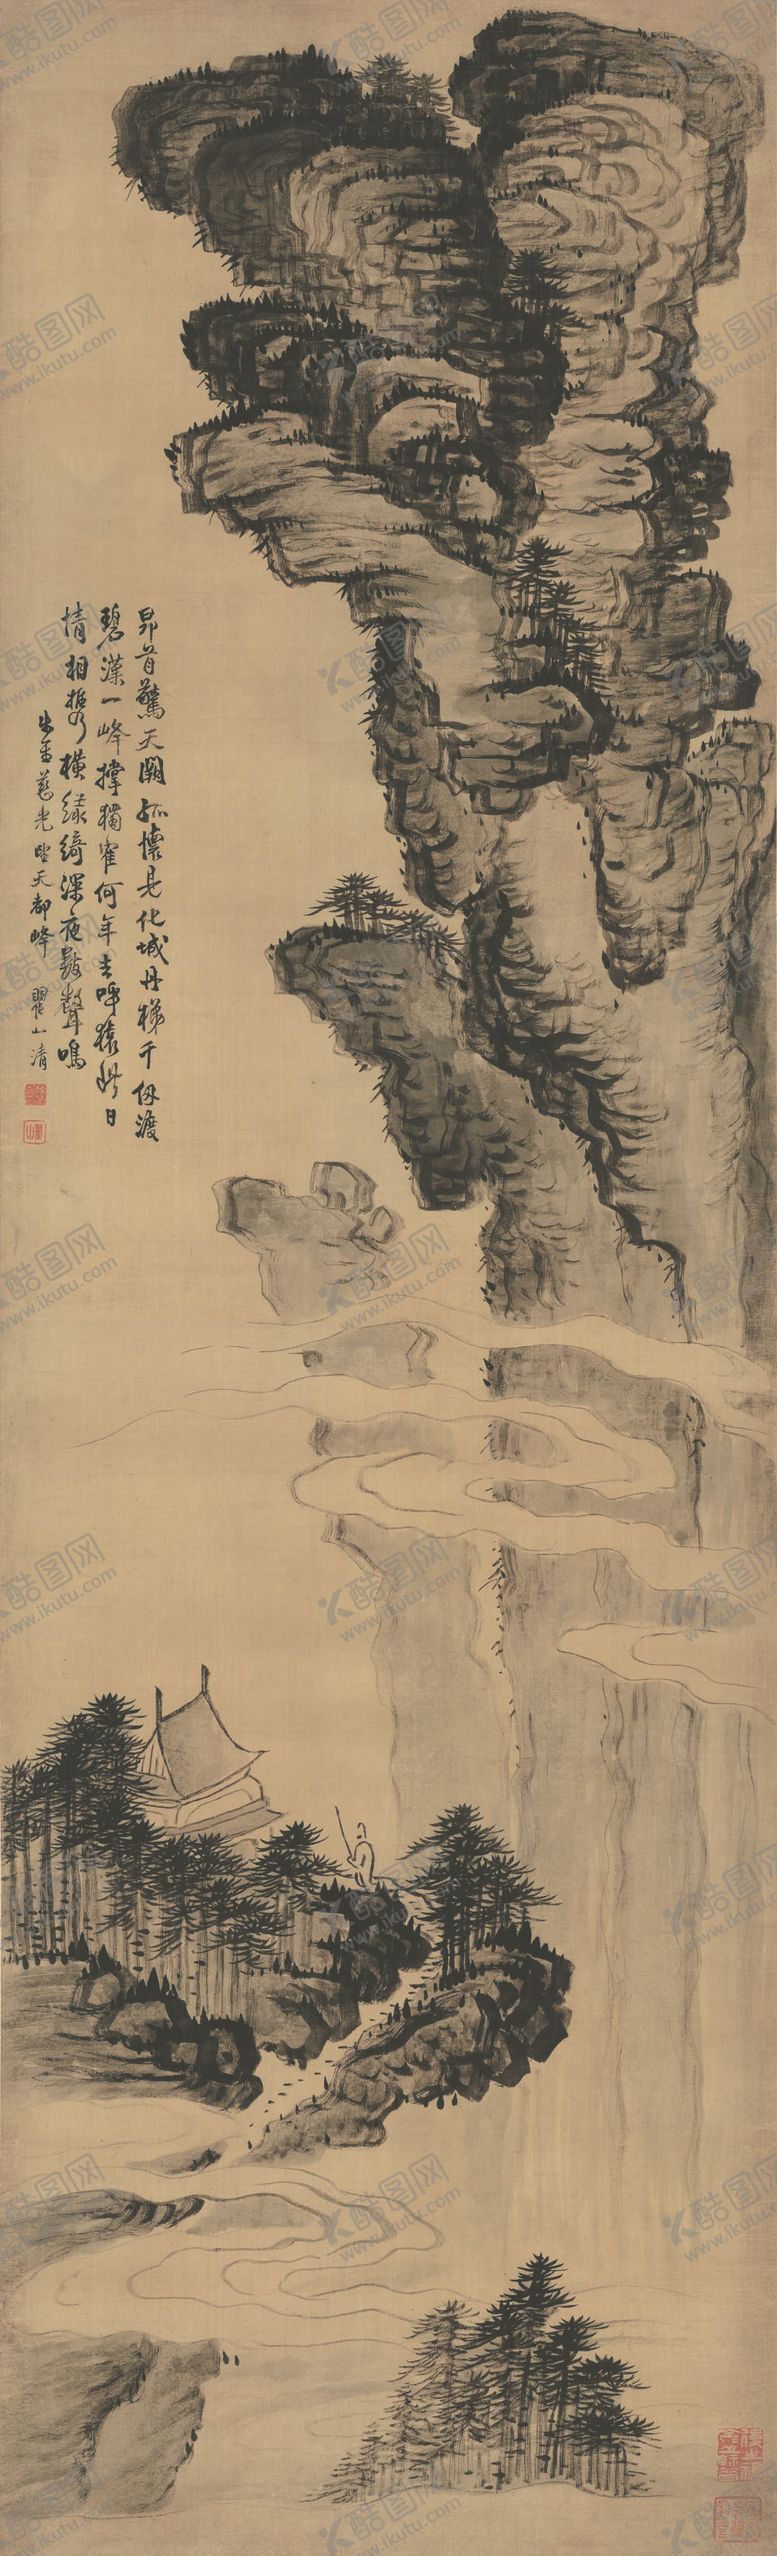 昂首驚天闕孤懷是化城丹梯千仞渡
碧漢一峰撑獨寉何年去呼猿此日
情相攜橫綠綺深夜鼓聲鳴
朱砂菴光坐天都峰 瞿山清
酷图网
www.ikutu.com